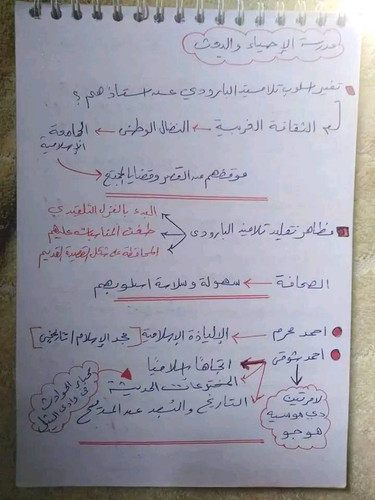 مدرسة الإحياء والبعث
تغير اسلوب تلاميذ البارودي عن استاذهم؟
لـ الثقافة الغربية ← النضال الوطني ← الجامعة الإسلامية
موقفهم من القصر وقضايا المجتمع
مظاهر تقليد تلاميذ البارودي
البدء بالغزل التقليدي
طبعت المناسبات عليهم
المحافظة على شكل القصيدة القديم
الصحافة ← سهولة وسلامة اسلوبهم
احمد محرم ← الإلياذة الإسلامية [مجد الإسلام تاريخي]
احمد شوقي ← اتجاها اسلاميا
المخترعات الحديثة
التاريخ والبعد عن المديح
كبار الحوادث في وادي النيل
لامرتين
دي موسيه
هوجو